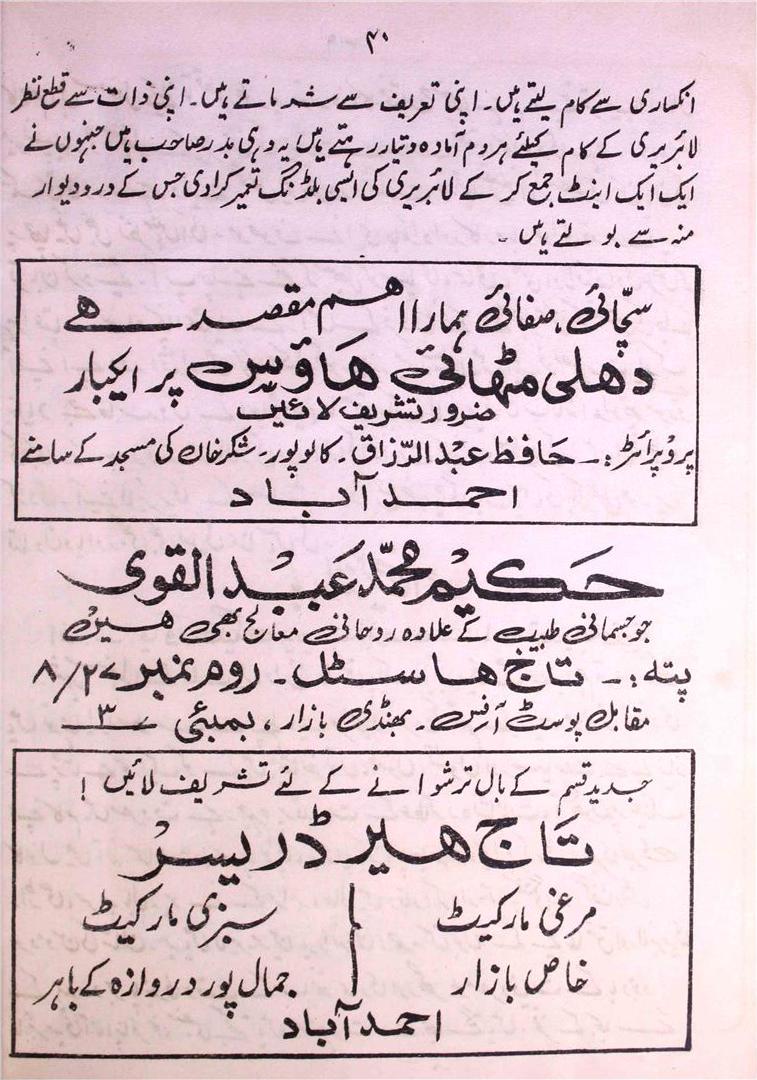 ۴۰
انکساری سے کام لیتے ہیں۔ اپنی تعریف سے شرماتے ہیں۔ اپنی ذات سے قطع نظر
لائبریری کے کام کیلئے ہر دم آمادہ و تیار رہتے ہیں یہ وہی بدر صاحب ہیں جنہوں نے
ایک ایک اینٹ جمع کر کے لائبریری کی ایسی بلڈنگ تعمیر کرادی جس کے در و دیوار
منہ سے بولتے ہیں۔
سچّائی، صفائی ہمارا اھم مقصد ہے
دھلی مٹھائی ھاؤس پر ایکبار
ضرور تشریف لائیں
پروپرائٹر:۔ حافظ عبدالرّزاق۔ کالوپور۔ شکر خان کی مسجد کے سامنے
احمدآباد
حکیم محمّد عبدالقوی
جو جسمانی طبیب کے علاوہ روحانی معالج بھی ھیں
پتہ:۔ تاج ھاسٹل۔ روم نمبر ۸/۲۷
مقابل پوسٹ آرفس۔ بھنڈی بازار، بمبئی ۳
جدید قسم کے بال ترشوانے کے لئے تشریف لائیں !
تاج ھیر ڈریسر
مرغی مارکیٹ
خاص بازار
سبزی مارکیٹ
جمال پور دروازہ کے باہر
احمدآباد